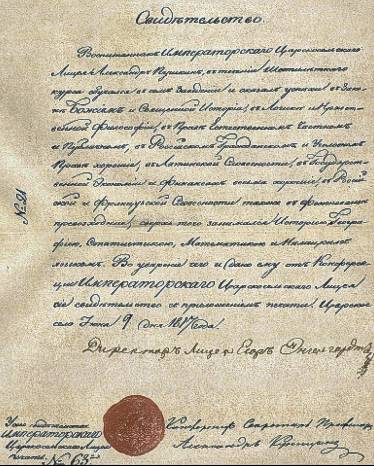 Свидѣтельство.
Воспитанникъ Императорскаго Царскосельскаго
Лицея Александръ Пушкинъ, въ теченіи шестилѣтняго
курса обучался въ семъ Заведеніи и оказалъ успѣхи: въ Зако-
нѣ Божіемъ и Священной Исторіи, въ Логикѣ и Нрав-
ственной Философіи, въ Правѣ Естественномъ, Частномъ
и Публичномъ, въ Россійскомъ Гражданскомъ и Уголовномъ
Правѣ хорошіе; въ Латинской Словесности, въ Государст-
венной Экономіи и Финансахъ весьма хорошіе; въ Россій-
ской и Французской Словесности также въ Фехтованіи
превосходные; сверхъ того занимался Исторіею, Геогра-
фіею, Статистикою, Математикою и Нѣмецкимъ
языкомъ. Во увѣреніе чего и дано ему отъ Конферен-
ціи Императорскаго Царскосельскаго Лицея
сіе свидѣтельство съ приложеніемъ печати. Царское
село Іюня 9 дня 1817 года.
№ 21
Директоръ Лицея Егоръ Энгельгардтъ
Конференцъ Секретарь Профессоръ
Александръ Куницынъ
Императорскаго
Царскосельскаго Лицея
печати. № 63